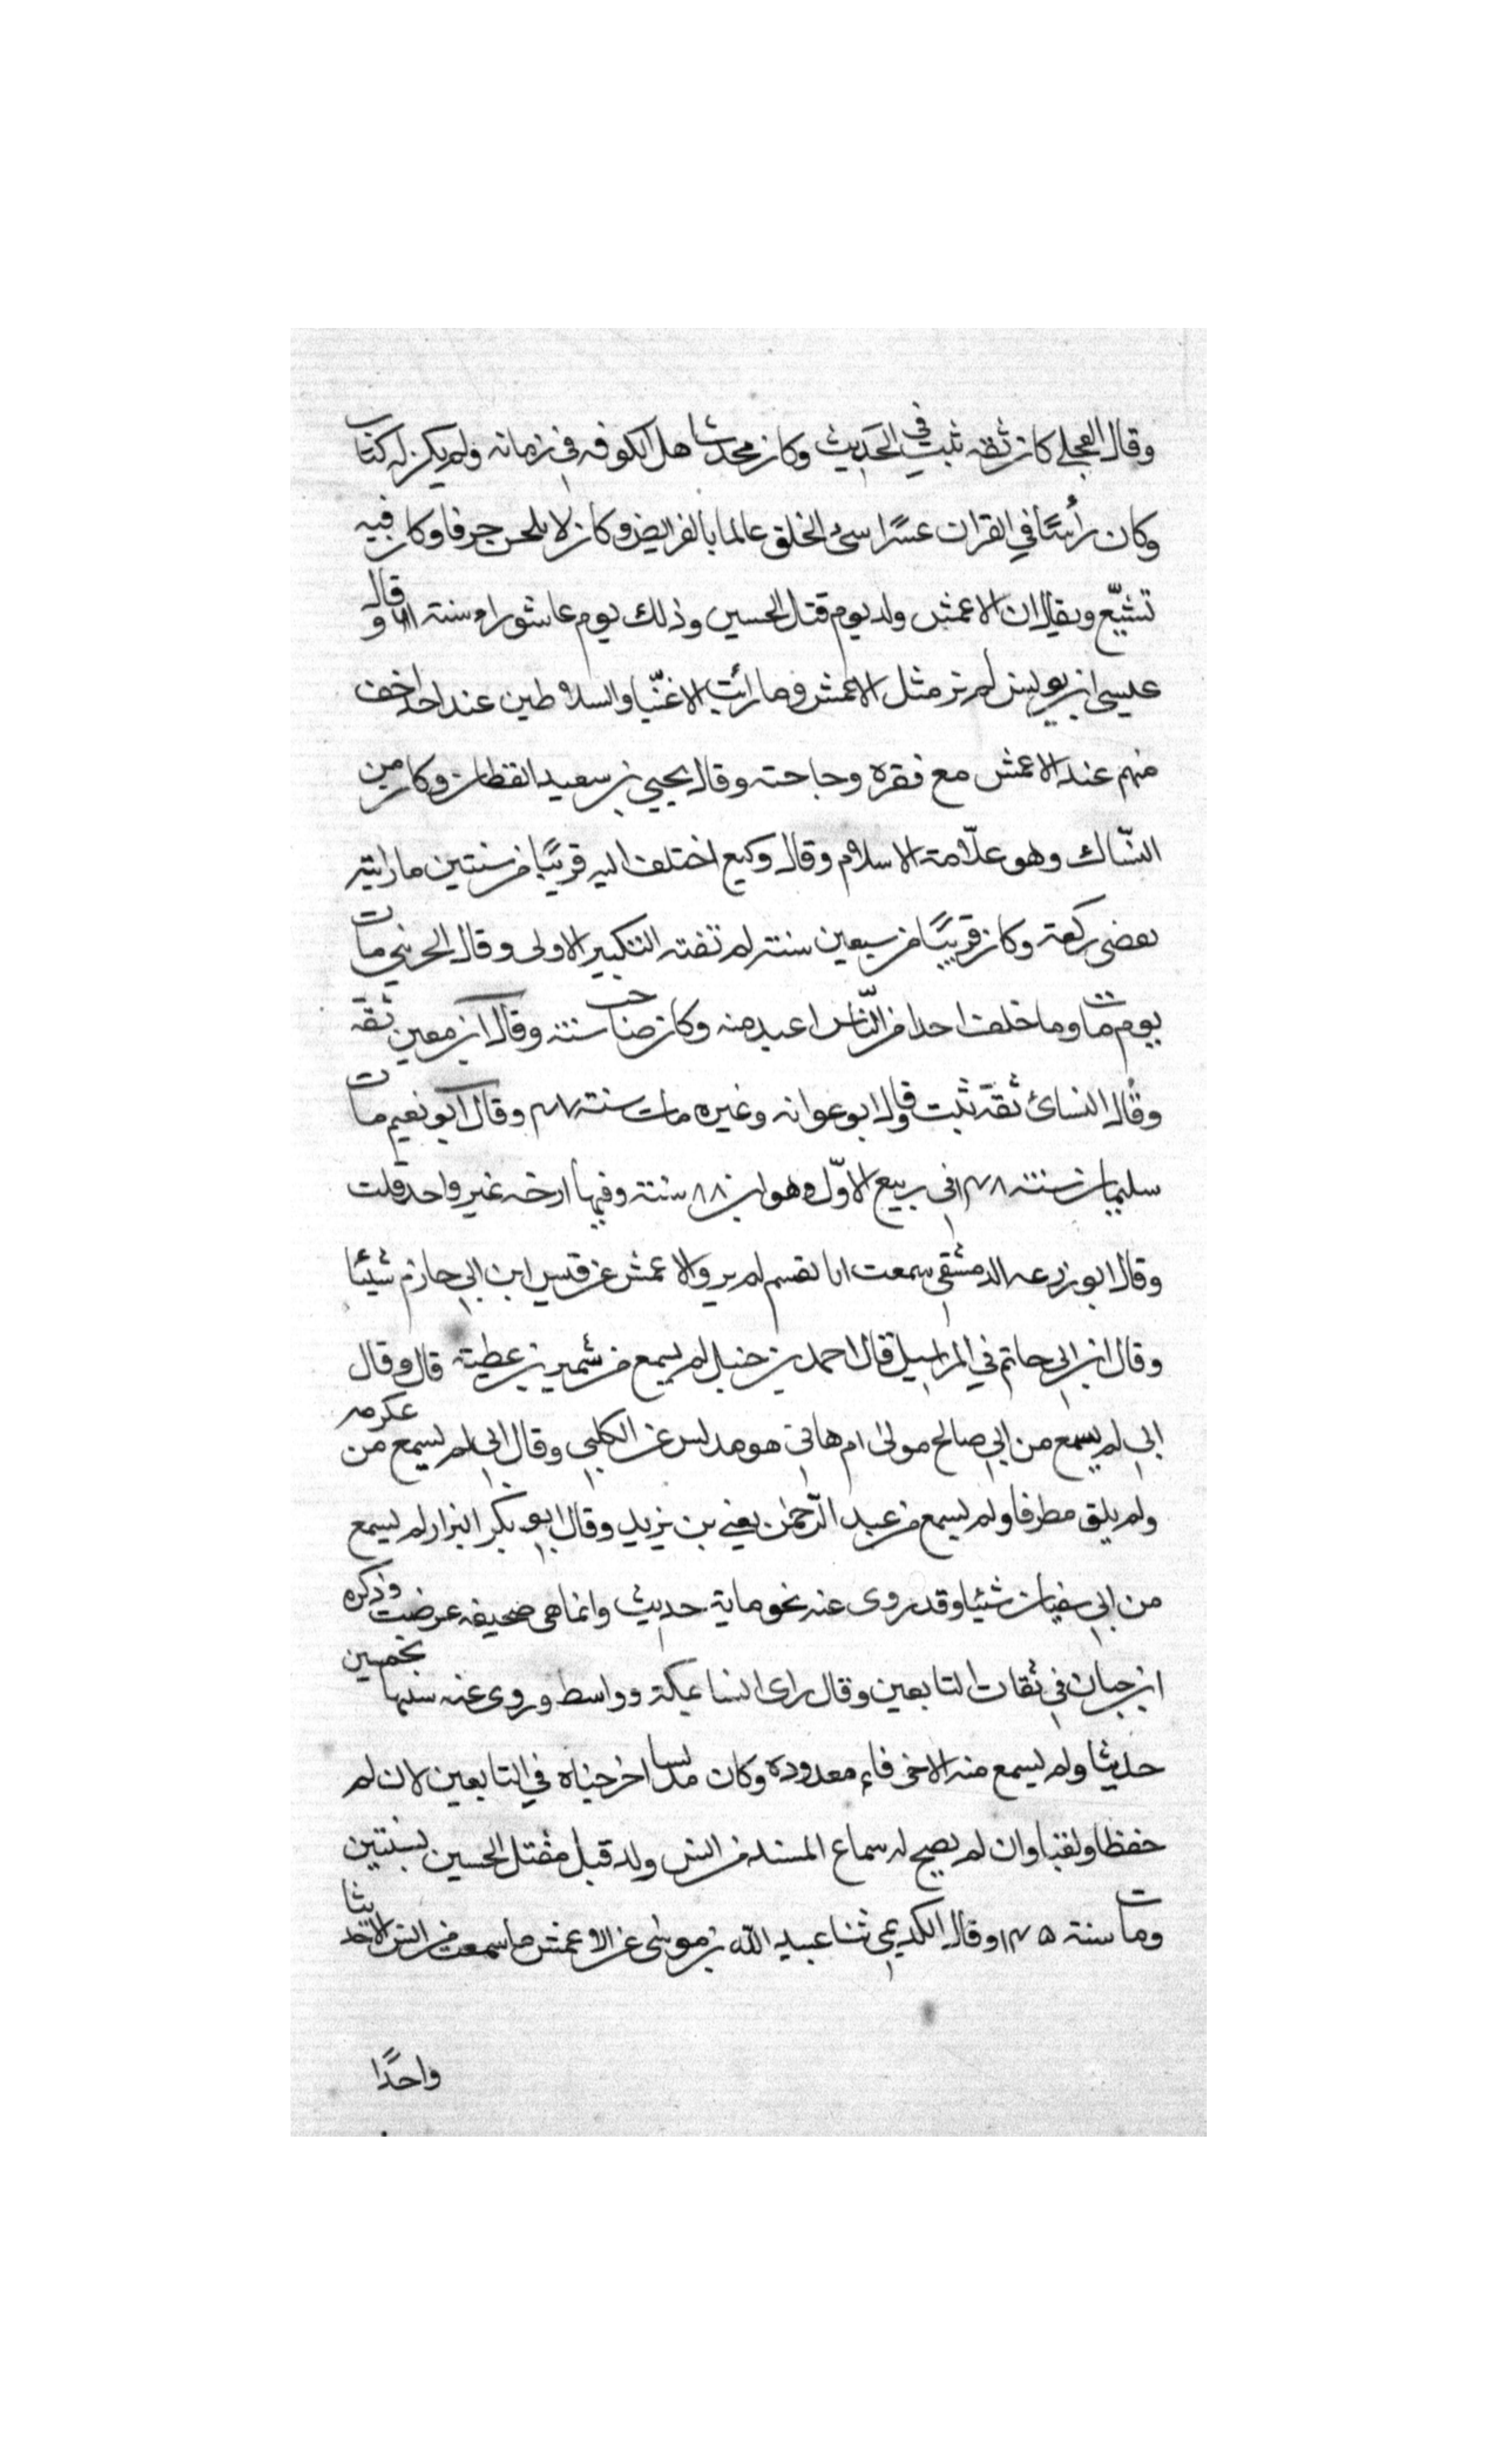 وقال العجلي كان ثقه ثبت في الحديث وكان محدث اهل الكوفه في زمانه ولم يكن له كتاب
وكان رأسًا في القران عسرًا سئ الخلق عالما بالفرايض وكان لا يلحن حرفا وكان فيه
تشيّع ويقال ان الاعمش ولد يوم قتل الحسين وذلك يوم عاشوراء سنة ٦١ وقال
عيسى ابن يونس لم نر مثل الاعمش وما رأيت الاغنيا والسلاطين عند احد اخف
منهم عند الاعمش مع فقره وحاجته وقال يحيى بن سعيد القطان وكان من
النسّاك وهو علّامة الاسلام وقال وكيع اختلفت اليه قريبًا من سنتين ما رايته
يقضى ركعة وكان قريبًا من سبعين سنة لم تفته التكبير الاولى وقال الخريبي مات
يوم مات وما خلف احدا من النّاس اعبد منه وكان صاحب سنة وقال ابن معين ثقه
وقال النسائ ثقة ثبت وقال ابو عوانه وغيره مات سنة ١٤٧ وقال ابو نعيم مات
سليمان سنة ١٤٨ في ربيع الاوّل وهو ابن ٨٨ سنة وفيها ارخه غير واحد قلت
وقال ابو زرعه الدمشقي سمعت ابا نعيم لم يرو الاعمش عن قيس ابن ابي حازم شيئا
وقال ابن ابي حاتم في المراسيل قال احمد بن حنبل لم يسمع من شمر بن عطية قال وقال
ابي لم يسمع من ابي صالح مولى ام هاني هو مدلس عن الكلبي وقال ابي لم يسمع من عكرمه
ولم يلق مطرفا ولم يسمع من عبد الرّحمن يعني بن يزيد وقال ابو بكر البزار لم يسمع
من ابي سفيان شيئا وقد روى عنه نحو ماية حديث وانما هى صحيفه عرضت وذكره
ابن حبان في ثقات التابعين وقال راى انسا بمكة وواسط وروى عنه شبيها بخمسين
حديثا ولم يسمع منه الا خرفاء معدوده وكان مدلسا اخرجناه في التابعين لان لم
حفظا ولقيا وان لم يصح له سماع المسند من انس ولد قبل مقتل الحسين بسنتين
ومات سنة ١٤٥ وقال الكديمي ثنا عبيد اللّه بن موسى عن الاعمش ما سمعت من انس الا حديثا
واحدًا